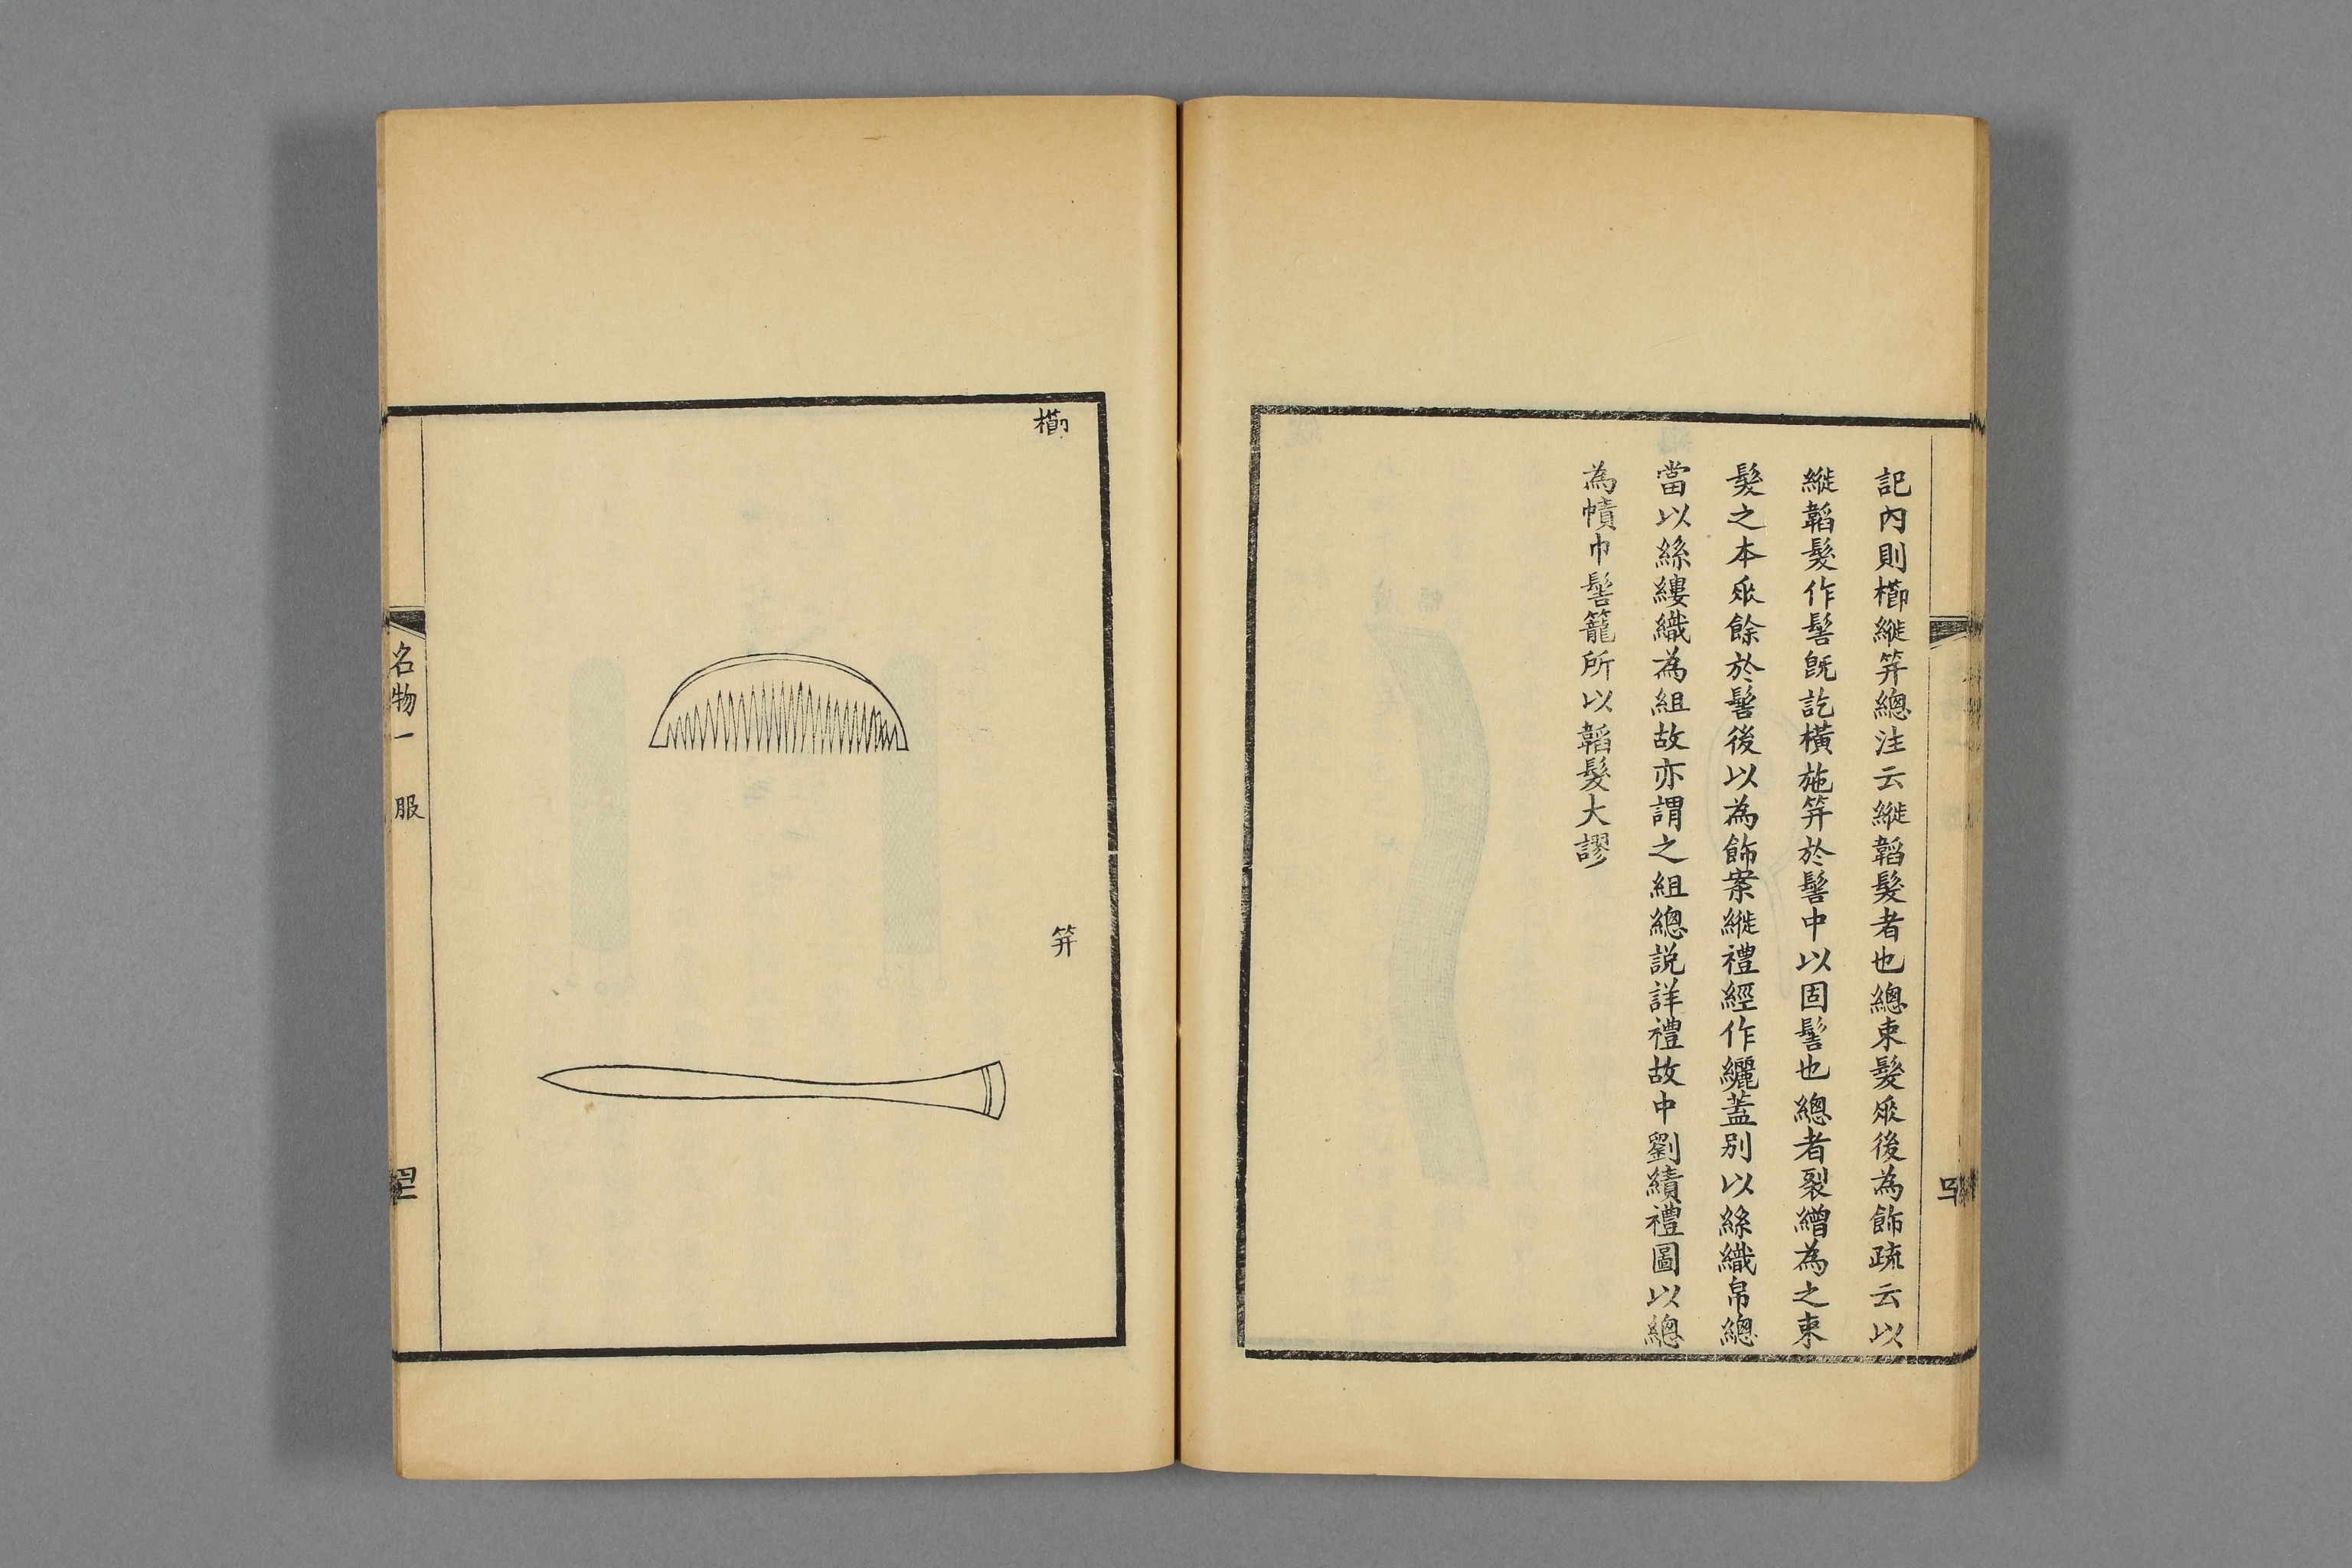 記內則櫛縰筓總注云縰韜髮者也總束髮𠂢後為飾疏云以
縰韜髮作髻旣訖橫施筓於髻中以固髻也總者裂繒為之束
髮之本𠂢餘於髻後以為飾案縰禮經作纚蓋別以絲織帛總
當以絲縷織為組故亦謂之組總説詳禮故中劉績禮圖以總
為幘巾髻籠所以韜髮大謬
櫛
筓
名物一 服